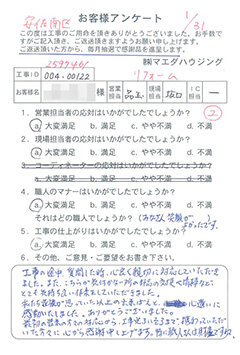 安佐南区
お客様アンケート
1/31
この度は工事のご用命を頂きありがとうございました。お手数で
すがご記入頂き、ご返送頂きますようお願い申し上げます。
ご返送頂いた方から、毎月抽選で感謝品を進呈します。
2597461
㈱マエダハウジング
工事ID 004-00122 リフォーム
お客様名 様 営業担当 現場担当 坂口 IC担当 ー
1. 営業担当者の応対はいかがでしたでしょうか?
a. 大変満足 b. 満足 c. やや不満 d. 不満
2. 現場担当者の応対はいかがでしたでしょうか?
a. 大変満足 b. 満足 c. やや不満 d. 不満
3. コーディネーターの応対はいかがでしたでしょうか?
a. 大変満足 b. 満足 c. やや不満 d. 不満
4. 職人のマナーはいかがでしたでしょうか?
a. 大変満足 b. 満足 c. やや不満 d. 不満
それはどの職人でしょうか? (みなさん笑顔が
よかったです。)
5. 工事の仕上がりはいかがでしたでしょうか?
a. 大変満足 b. 満足 c. やや不満 d. 不満
6. その他、ご意見・ご要望をお書き下さい。
工事の途中、質問した時、心良く親切に対応していただき
ました。また、こちらが気付かない所の
とても気持ち良い作業をしていただきました。
私たち家族が思っていた以上の出来ばえと、心遣いに
感動いたしました。ありがとうございました。
工事完了まで携わっていただ
いた方々に心から感謝申し上げます。